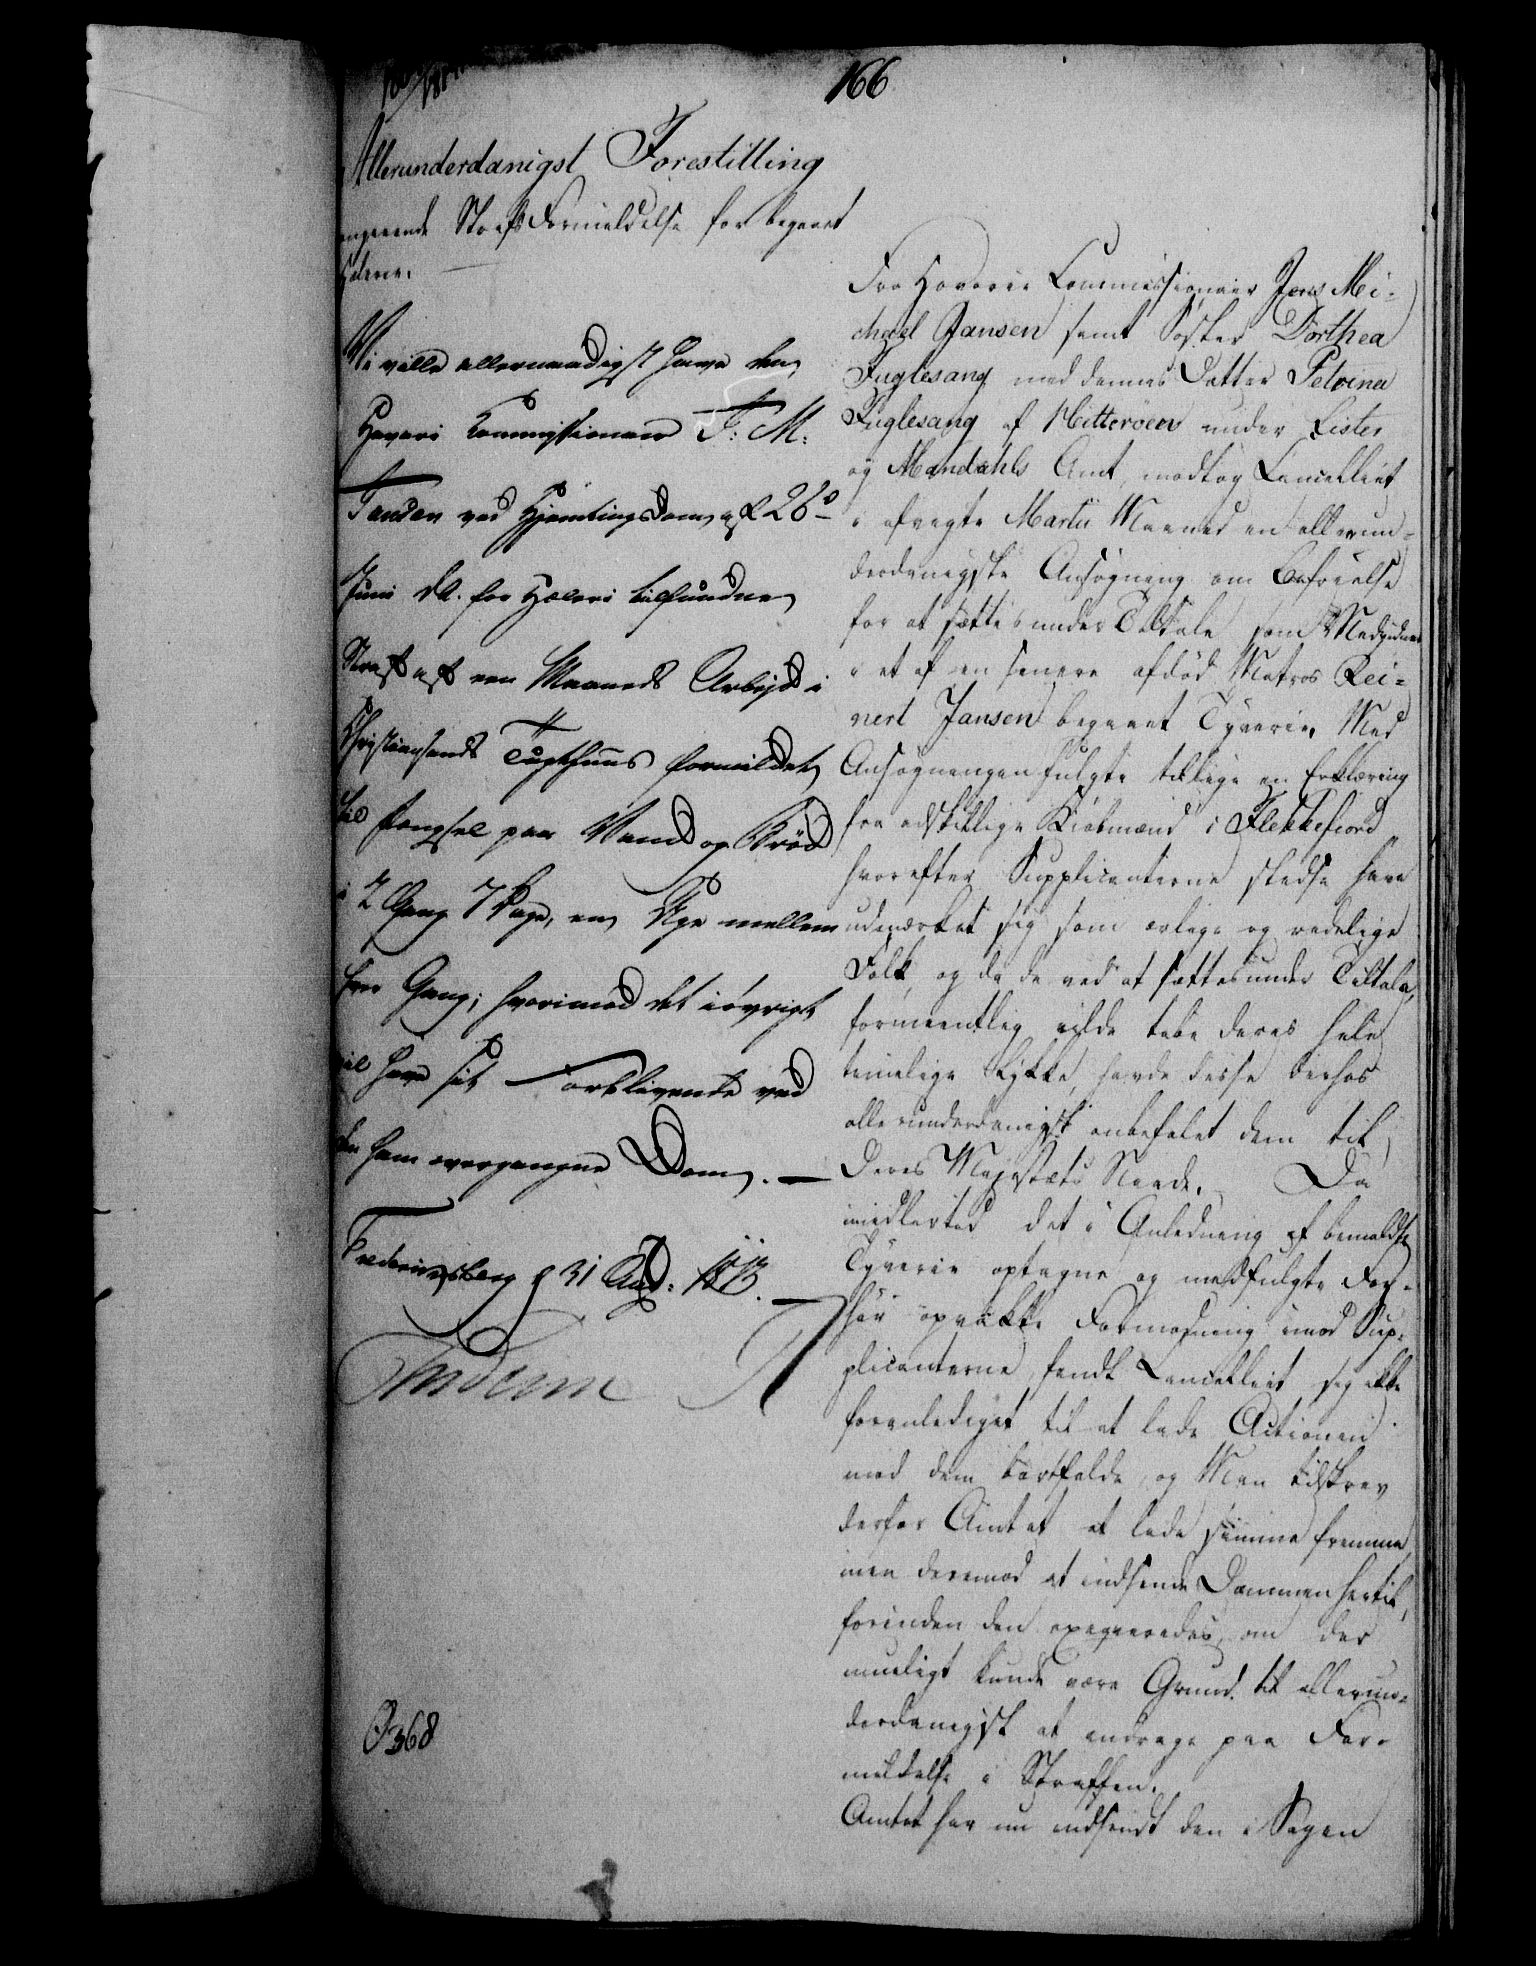 166
Allerunderdanigst Forestilling
angaaende Straffs Formildelse for begaaet
Hæleri.
Vi ville allernaadigst have den
Havari Commissionair J: M:
Jansen ved Hjemtings Dom af 26de
Juni d. A. for Hæleri tilfundne
Straf af een Maaneds Arbejde i
Christiansands Tugthuus formildet
til Fængsel paa Vand og Brød
i 2 Gang 7 Dage, en Uge mellem
hver Gang; hvorimod det iøvrigt
vil have sit Forblivende ved
den ham overgangne Dom. —
Frederiksberg d 31 Aug: 1813. —
368
Fra Havarie Commissionair Jens Mi-
chael Jansen samt Søster Dorthea
Fuglesang med dennes Datter Petvina
Fuglesang af Hitterøen under Lister
og Mandahls Amt, modtog Cancelliet
i afvigte Martii Maaned en allerun-
derdanigste Ansøgning om Befrielse
for at sættes under Tiltale som Medvidere
i et af en senere afdød Matros Rei-
nert Jansen begaaet Tyverie. Med
Ansøgningen fulgte tillige en Erklæring
fra adskillige Kiøbmænd i Flekkefiord
hvorefter Supplicanterne stedse have
udmærket sig som ærlige og redelige
Folk, og da de ved at sættes under Tiltale,
formeentlig vilde tabe deres hele
timelige Lykke, havde disse derhos
allerunderdanigst anbefalet dem til
Deres Majestæts Naade. Da
imidlertid det i Anledning af bemeldte
Tyverie optagne og medfulgte For-
hør opvakte Formodning imod Sup-
plicanterne, fandt Cancelliet sig ikke
foranlediget til at lade Actionen
mod dem bortfalde, og Man tilskrev
derfor Amtet at lade samme fremme,
men derimod at indsende Dommen hertil,
forinden den exeqveredes, om der
mueligt kunde være Grund til allerun-
derdanigst at andrage paa For-
mildelse i Straffen.
Amtet har nu indsendt den i Sagen